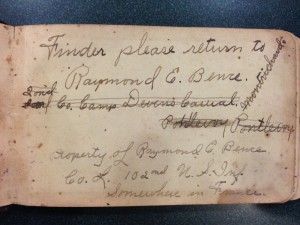 Finder please return to
Raymond E. Bence.
Co. Camp Devens Casual.
Pontlevoy Pontlevoy
Property of Raymond E Bence
Co. L. 102nd U.S. Inf.
Somewhere in France.